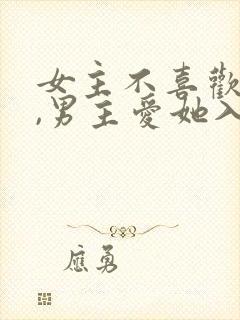 女主不喜歡
,男主愛她入
應勇